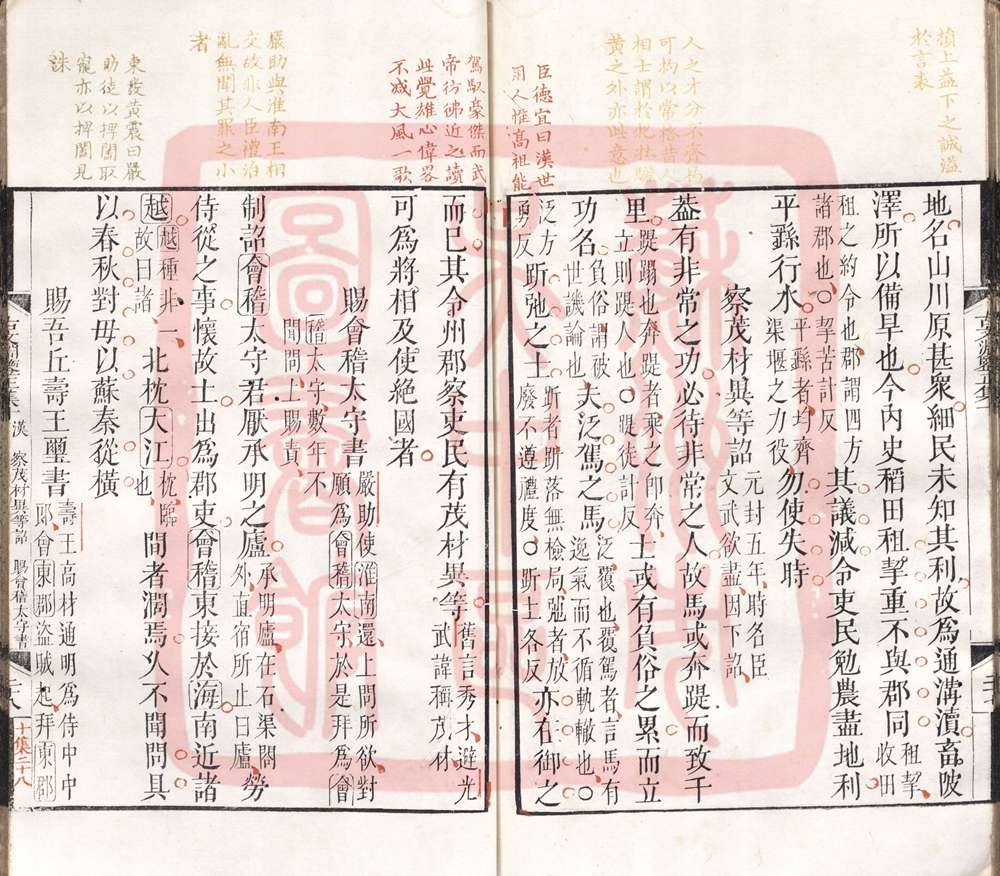 損上益下之誠溢
於言表
人之才分不齊焉
可拘以常格昔人
相士謂於牝牡驪
黄之外亦此意也
臣德宜曰漢世
用人惟高祖能
地名山川原甚衆細民未知其利故爲通溝瀆畜陂
澤所以備旱也今內史稻田租挈重不與郡同租挈收田
租之約令也郡謂四方諸郡也○挈苦計反其議減令吏民勉農盡地利
平繇行水平繇者均齊渠堰之力役勿使失時
察茂材異等詔元封五年時名臣文武欲盡因下詔
葢有非常之功必待非常之人故馬或奔踶而致千
里踶蹋也奔踶者乘之卽奔立則踶人也○踶徒計反士或有負俗之累而立
功名負俗謂被世譏論也夫泛駕之馬泛覆也覆駕者言馬有逸氣而不循軌轍也○
泛方勇反跅弛之士跅者跅落無檢局弛者放廢不遵禮度○跅士各反亦在御之
駕馭豪傑而武
帝彷彿近之讀
此覺雄心偉畧
不減大風一歌
嚴助與淮南王相
交故非人臣禮治
亂無聞其罪之小
者
東發黄震曰嚴
助徒以捭闔取
寵亦以捭闔見
誅
而已其令州郡察吏民有茂材異等舊言秀才避光武諱稱茂材
可爲將相及使絕國者
賜會稽太守書嚴助使淮南還上問所欲對願爲會稽太守於是拜爲會
稽太守數年不聞問上賜責
制詔會稽太守君厭承明之廬承明廬在石渠閣外直宿所止曰廬勞
侍從之事懷故土出爲郡吏會稽東接於海南近諸
越越種非一故曰諸北枕大江枕臨也間者濶焉乆不聞問具
以春秋對毋以蘇秦從橫
賜吾丘壽王璽書壽王高材通明爲侍中中郞會東郡盜賊起拜東郡
漢 察茂材異等詔 賜會稽太守書
十集二十八